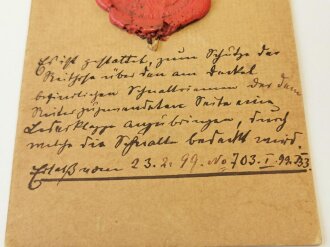 Es ist gestattet, zum Schutze der
Reithose über den am Deckel
befindlichen Schnallriemen der dem
Reiter zugewendeten Seite eine
Lederklappe anzubringen, durch
welche die Schnalle bedeckt wird.
Erlaß vom 23.2.99. No 703.I.99.B3